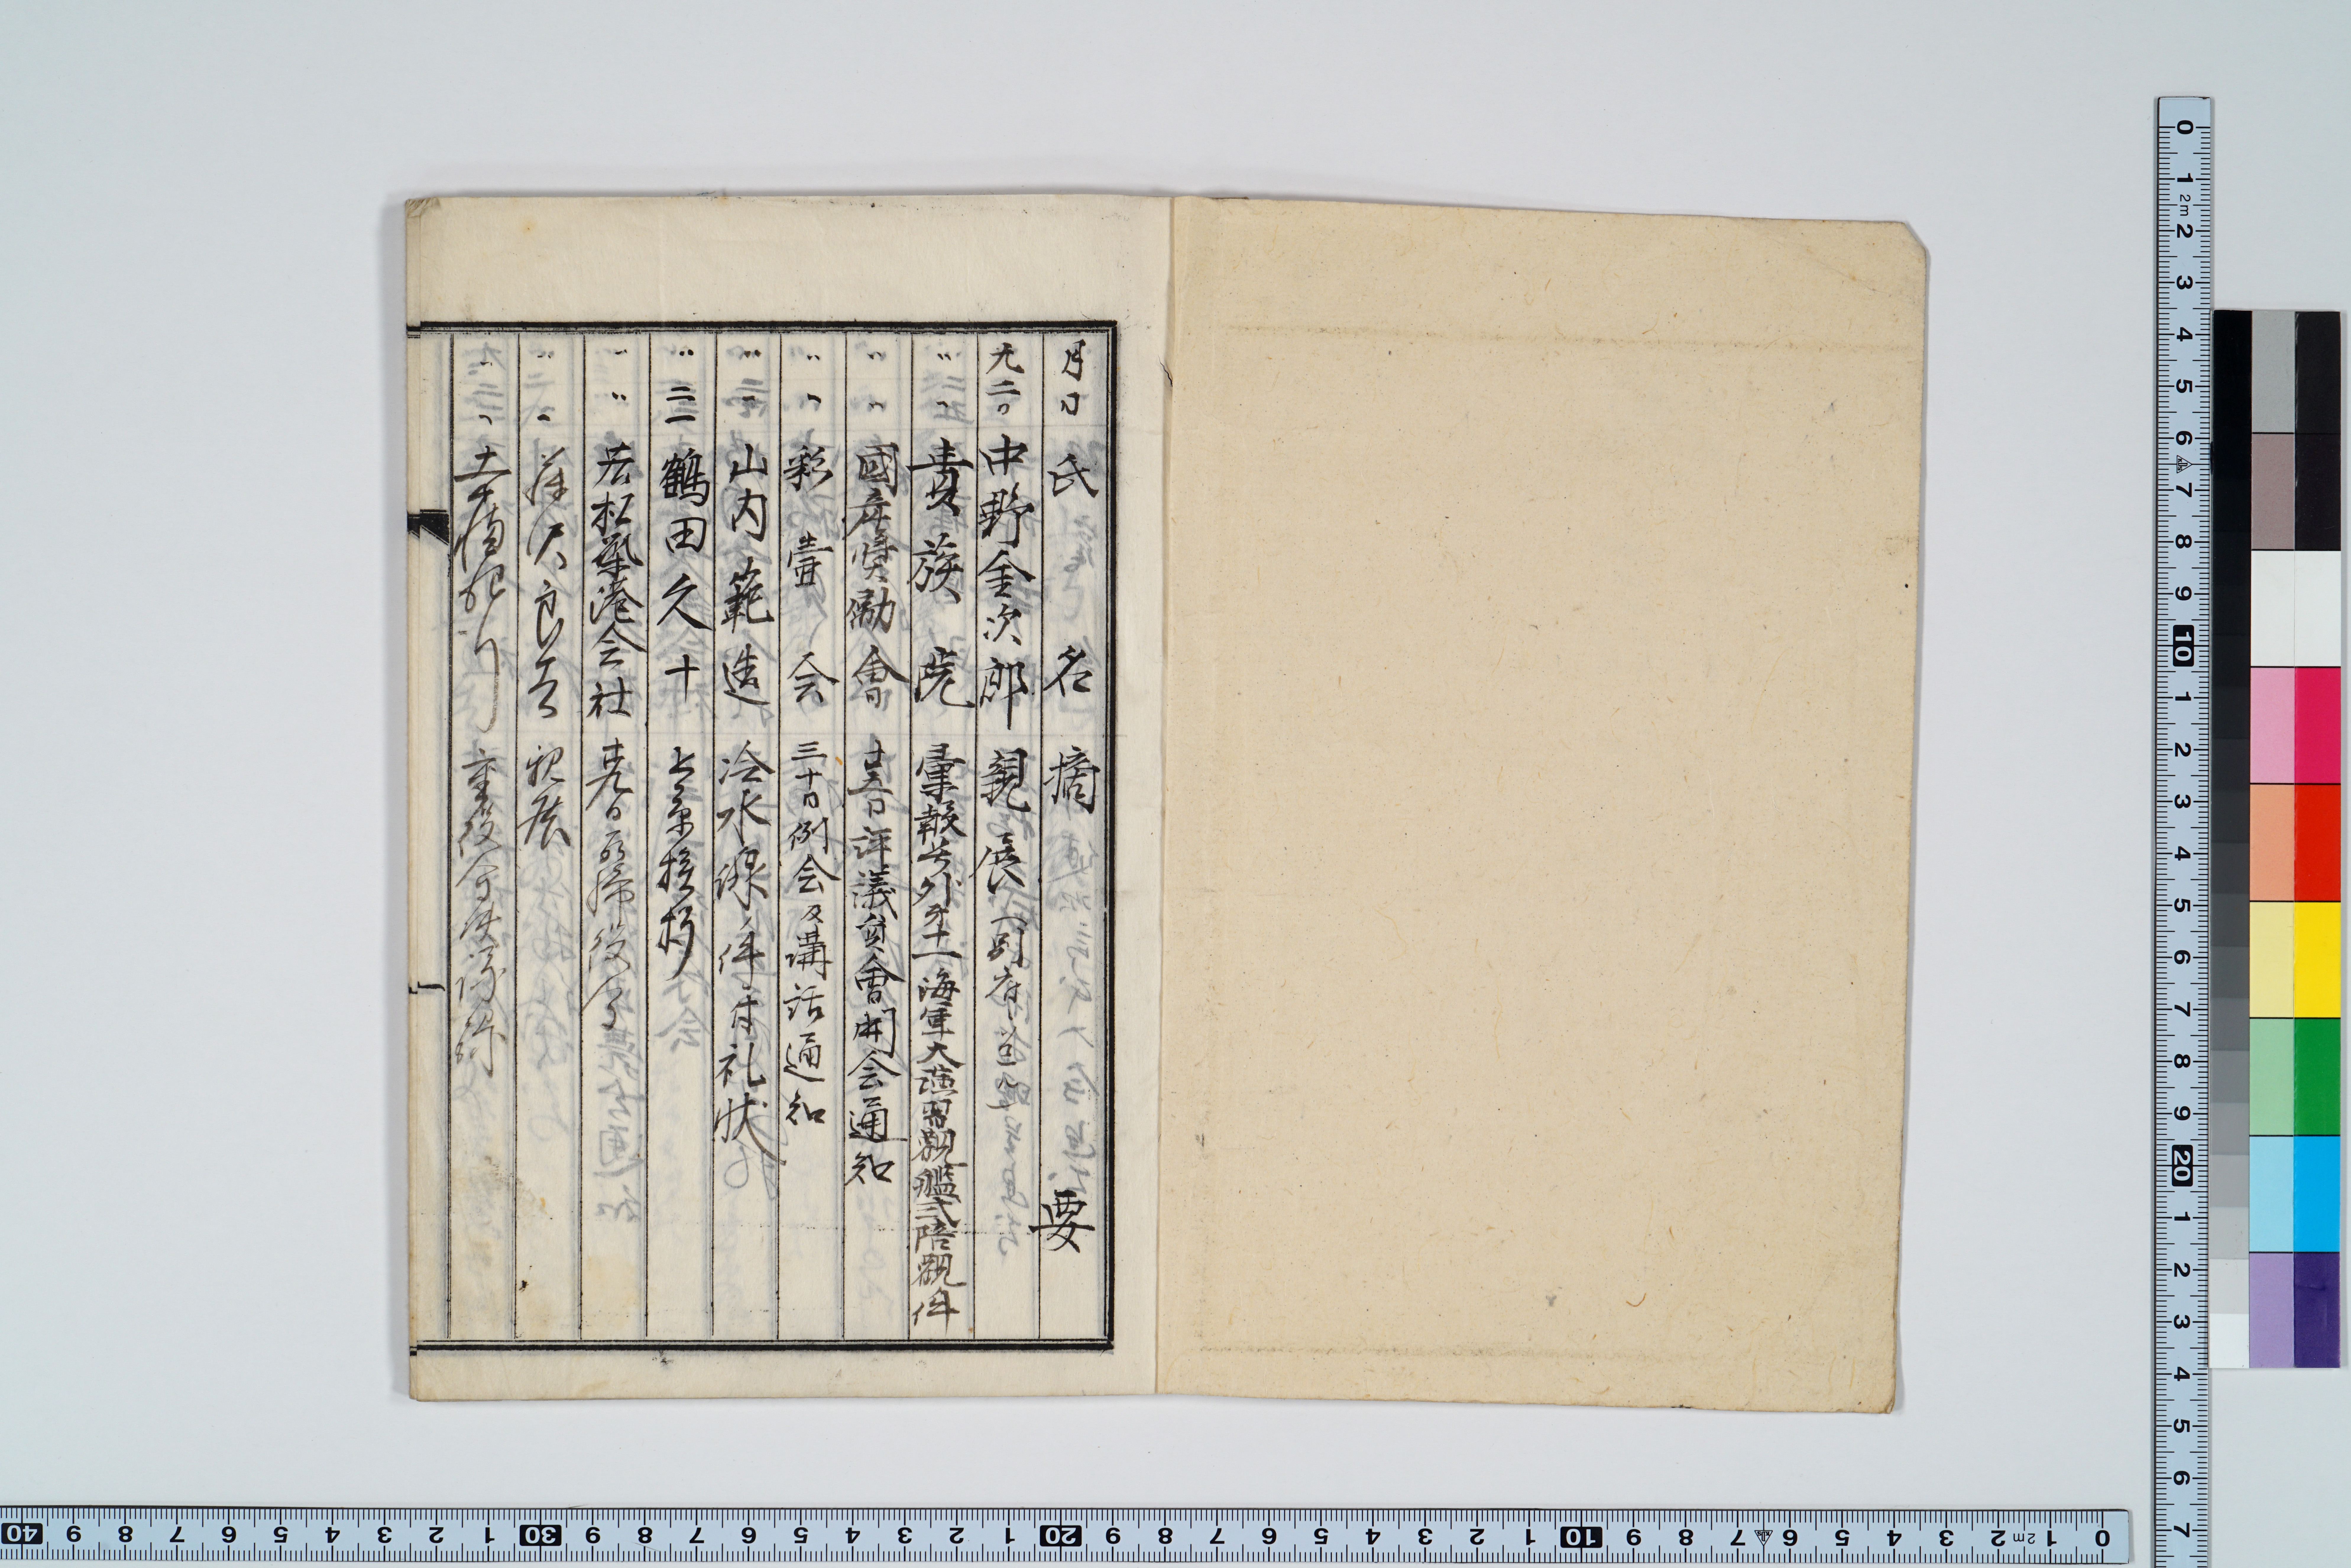 月日 氏名 摘要
九二〇 中野金次郎 親展（別府
〃〃 貴族院 彙報号外第十一海軍大演習観艦式陪観件
〃〃 國産奨励會 廿五日評議員會開会通知
〃〃 彩壺会 三十日例会及講話通知
〃〃 山内範造 冷水線ノ件ニ付礼状
〃二一 鶴田久十 上京挨拶
〃〃 若松築港会社 重役
〃〃 良吉 親展
〃〃 重役会
0 1 2m 2 3 4 5 6 7 8 9 10 1 2 3 4 5 6 7 8 9 20 1 2 3 4 5 6 7
40 9 8 7 6 5 4 3 2 1 30 9 8 7 6 5 4 3 2 1 20 9 8 7 6 5 4 3 2 1 10 9 8 7 6 5 4 3 2 2m 1 0